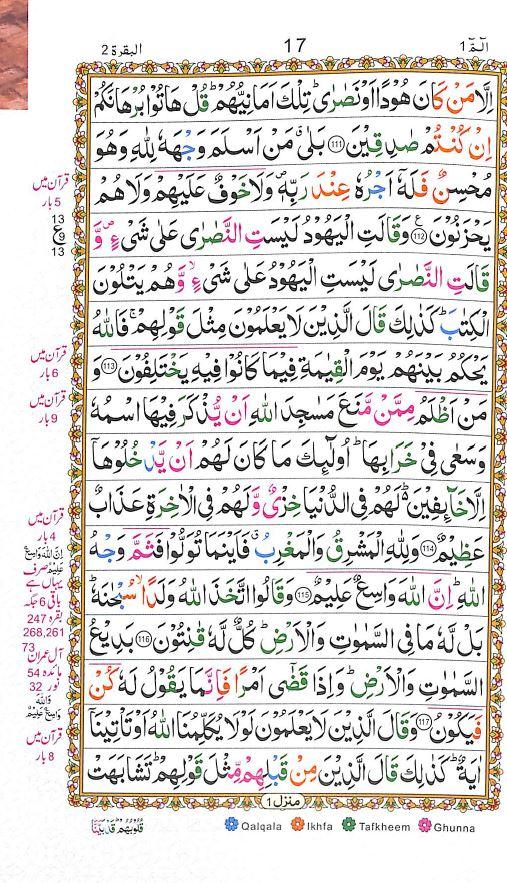 البقرة 2
17
الٓمّٓ 1
اِلَّا مَنْ كَانَ هُوْدًا اَوْ نَصٰرٰىؕ تِلْكَ اَمَانِیُّهُمْؕ قُلْ هَاتُوْا بُرْهَانَكُمْ
اِنْ كُنْتُمْ صٰدِقِیْنَ 111 بَلٰىۗ مَنْ اَسْلَمَ وَجْهَهٗ لِلّٰهِ وَهُوَ
مُحْسِنٌ فَلَهٗۤ اَجْرُهٗ عِنْدَ رَبِّهٖ۪ وَلَا خَوْفٌ عَلَیْهِمْ وَلَا هُمْ
یَحْزَنُوْنَ 112 وَقَالَتِ الْیَهُوْدُ لَیْسَتِ النَّصٰرٰى عَلٰى شَیْءٍ۪ وَّ
قَالَتِ النَّصٰرٰى لَیْسَتِ الْیَهُوْدُ عَلٰى شَیْءٍۙ وَّهُمْ یَتْلُوْنَ
الْكِتٰبَؕ كَذٰلِكَ قَالَ الَّذِیْنَ لَا یَعْلَمُوْنَ مِثْلَ قَوْلِهِمْۚ فَاللّٰهُ
یَحْكُمُ بَیْنَهُمْ یَوْمَ الْقِیٰمَةِ فِیْمَا كَانُوْا فِیْهِ یَخْتَلِفُوْنَ 113 وَ
مَنْ اَظْلَمُ مِمَّنْ مَّنَعَ مَسٰجِدَ اللّٰهِ اَنْ یُّذْكَرَ فِیْهَا اسْمُهٗ
وَسَعٰى فِیْ خَرَابِهَاؕ اُولٰٓىِٕكَ مَا كَانَ لَهُمْ اَنْ یَّدْخُلُوْهَاۤ
اِلَّا خَآىِٕفِیْنَ۬ؕ لَهُمْ فِی الدُّنْیَا خِزْیٌ وَّلَهُمْ فِی الْاٰخِرَةِ عَذَابٌ
عَظِیْمٌ 114 وَلِلّٰهِ الْمَشْرِقُ وَالْمَغْرِبُۗ فَاَیْنَمَا تُوَلُّوْا فَثَمَّ وَجْهُ
اللّٰهِؕ اِنَّ اللّٰهَ وَاسِعٌ عَلِیْمٌ 115 وَقَالُوا اتَّخَذَ اللّٰهُ وَلَدًاۙ سُبْحٰنَهٗؕ
بَلْ لَّهٗ مَا فِی السَّمٰوٰتِ وَالْاَرْضِؕ كُلٌّ لَّهٗ قٰنِتُوْنَ 116 بَدِیْعُ
السَّمٰوٰتِ وَالْاَرْضِؕ وَاِذَا قَضٰۤى اَمْرًا فَاِنَّمَا یَقُوْلُ لَهٗ كُنْ
فَیَكُوْنُ 117 وَقَالَ الَّذِیْنَ لَا یَعْلَمُوْنَ لَوْ لَا یُكَلِّمُنَا اللّٰهُ اَوْ تَاْتِیْنَاۤ
اٰیَةٌؕ كَذٰلِكَ قَالَ الَّذِیْنَ مِنْ قَبْلِهِمْ مِّثْلَ قَوْلِهِمْؕ تَشَابَهَتْ
منزل 1
قُلُوْبُهُمْؕ قَدْ بَیَّنَّا
Qalqala Ikhfa Tafkheem Ghunna
قرآن میں
5 بار
13
ع
9
13
قرآن میں
6 بار
قرآن میں
9 بار
قرآن میں
4 بار
اِنَّ اللّٰهَ وَاسِعٌ
عَلِیْمٌ صرف
یہاں ہے
باقی 6 جگہ
بقرہ 247
268,261
73
آل عمران
مائدہ 54
نور 32
وَاللّٰهُ
وَاسِعٌ عَلِیْمٌ
قرآن میں
8 بار